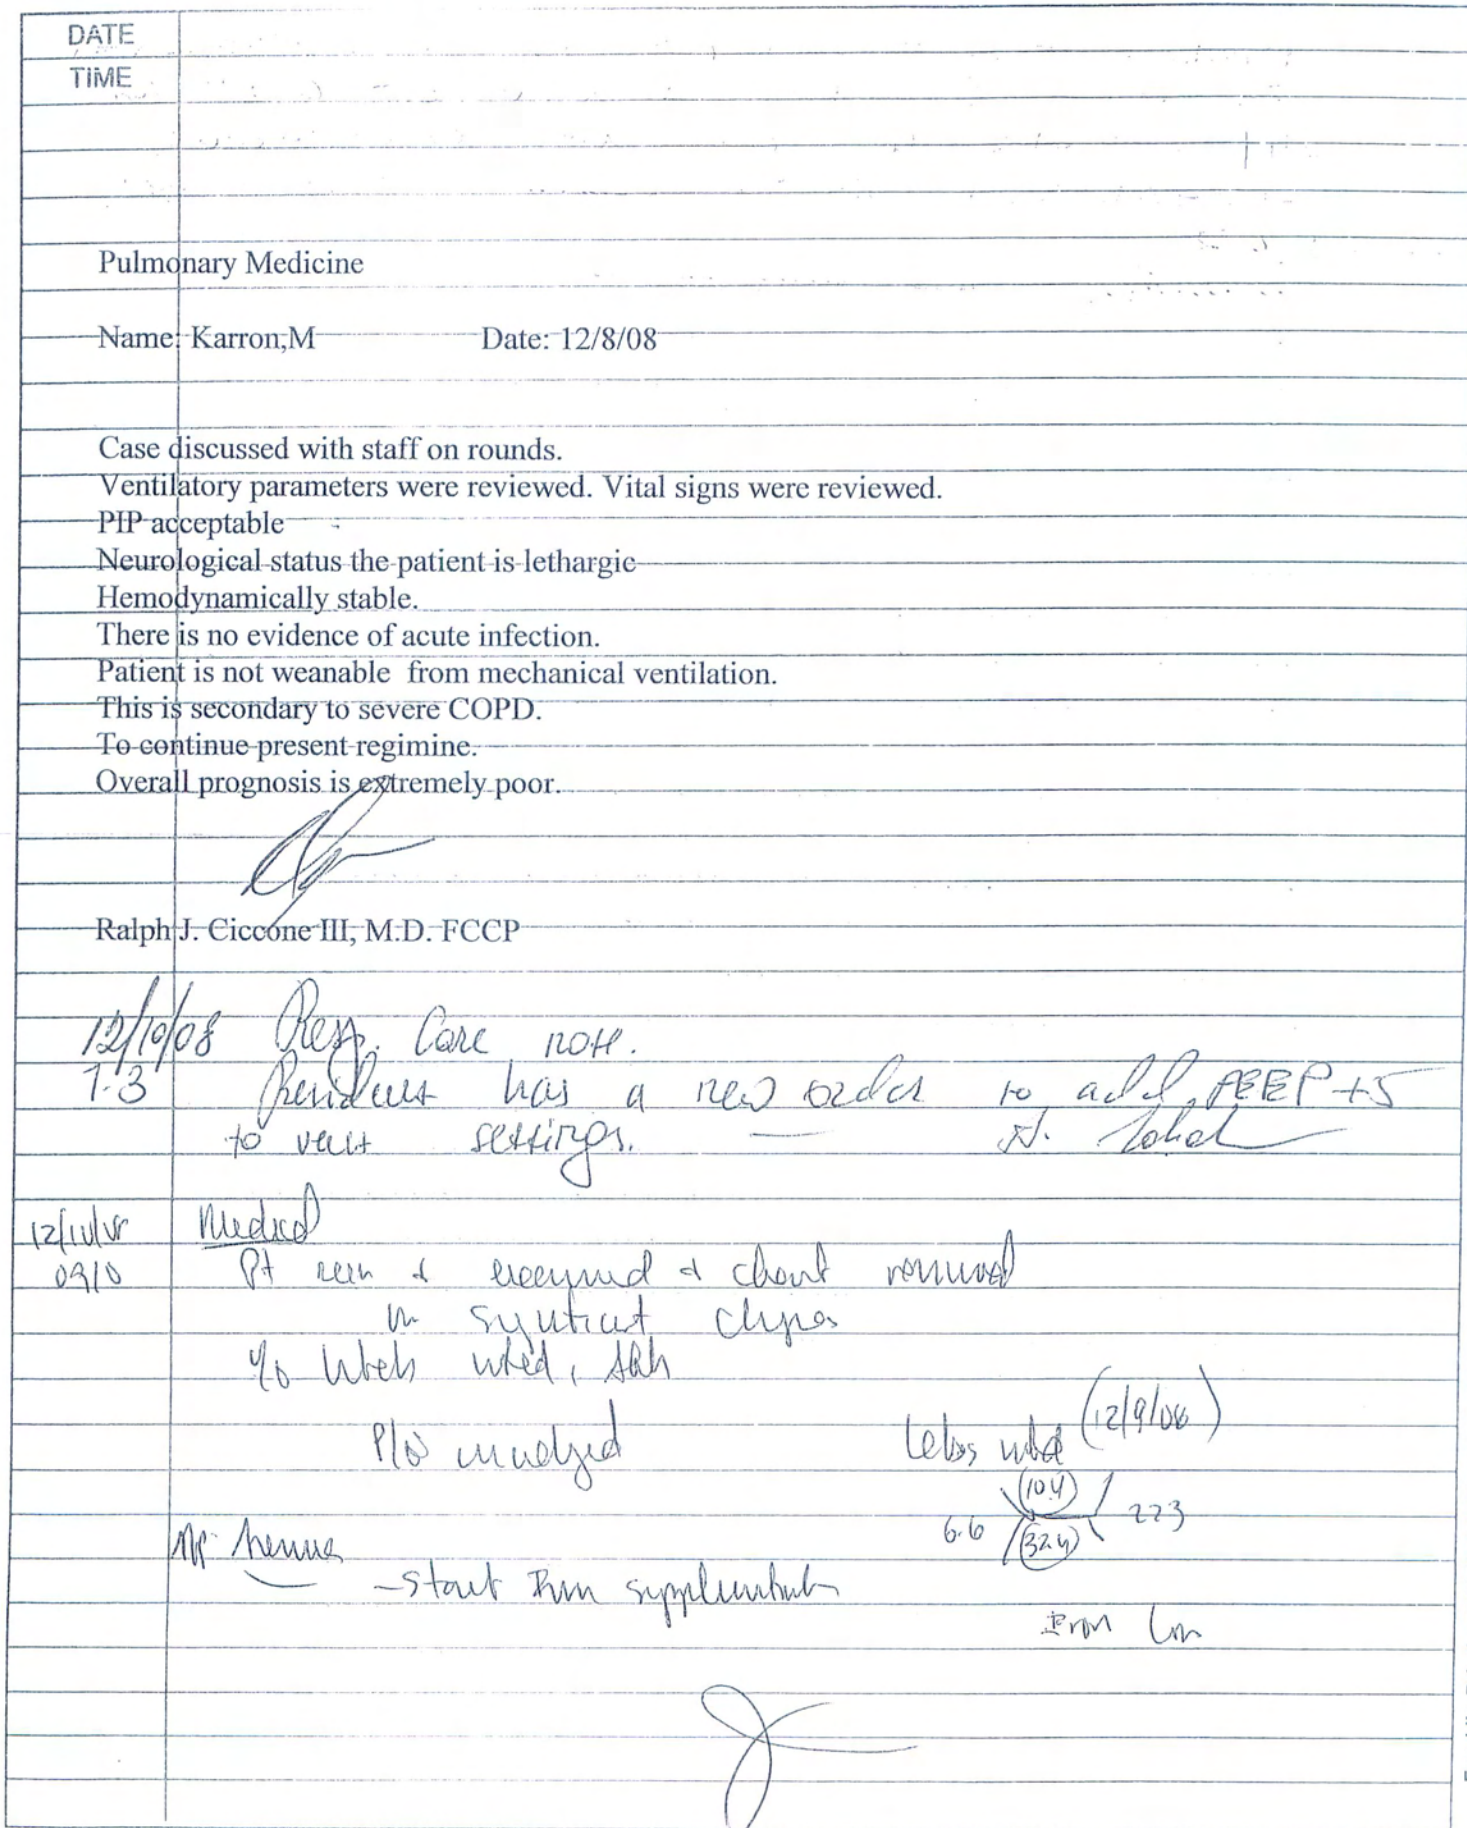 DATE
TIME
Pulmonary Medicine
Name: Karron,M Date: 12/8/08
Case discussed with staff on rounds.
Ventilatory parameters were reviewed. Vital signs were reviewed.
PIP acceptable
Neurological status the patient is lethargic
Hemodynamically stable.
There is no evidence of acute infection.
Patient is not weanable from mechanical ventilation.
This is secondary to severe COPD.
To continue present regimine.
Overall prognosis is extremely poor.
Ralph J. Ciccone III, M.D. FCCP
12/10/08 Resp. Care note.
7-3 Resident has a new order to add PEEP +5
to vent settings. — N.
12/10/08 Medical
0910 Pt seen & examined & chart reviewed
no significant changes
(12/9/08)
Labs noted
10.4
6.6 223
32.4
- Start Iron
Iron Low